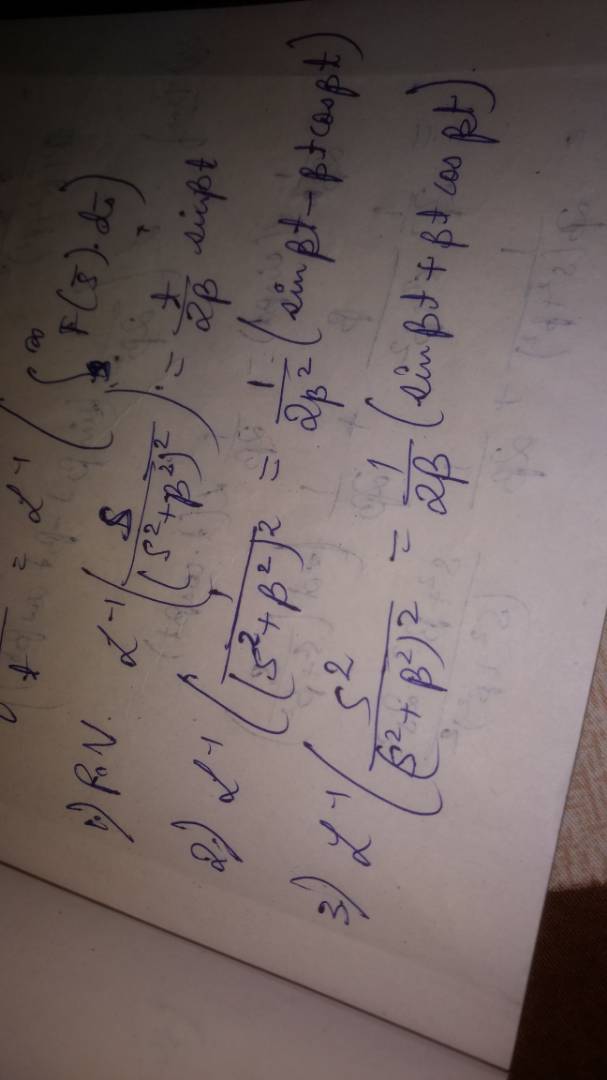 t = L⁻¹ ( ∫ ∞ F(s̄). ds̄ )
1.) P.N. L⁻¹ ( s / (s²+β²)² ) = t/2β sinβt
2.) L⁻¹ ( 1 / (s²+β²)² ) = 1/2β² ( sin βt - βt cosβt )
3) L⁻¹ ( s² / (s²+β²)² ) = 1/2β ( sinβt + βt cos βt ).